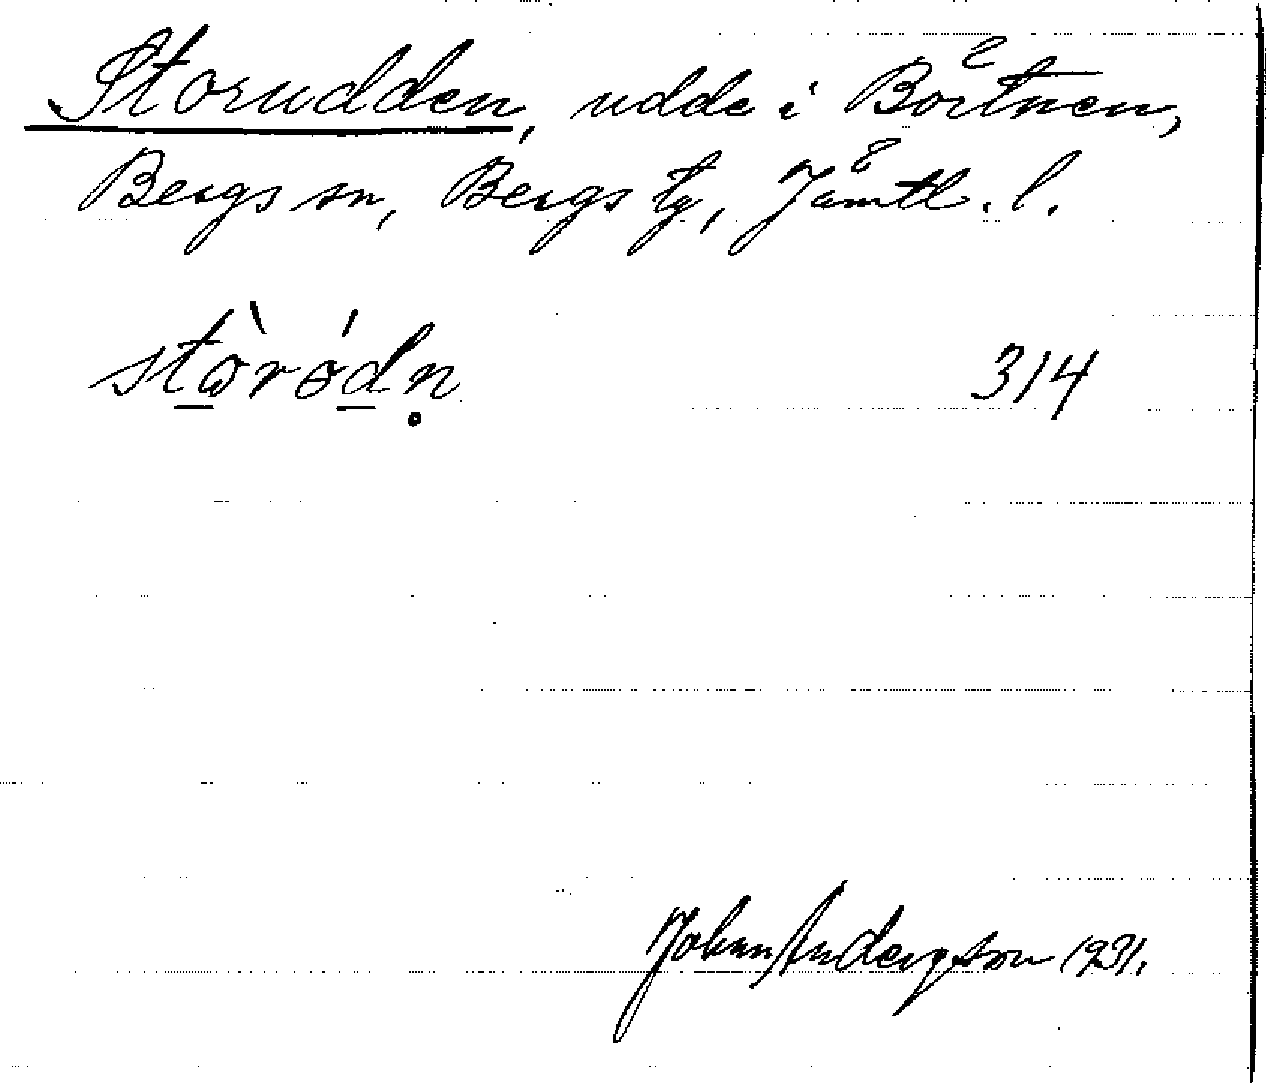 Storudden, udde i Börtnen,
Bergs sn, Bergs tg, Jämtl. l.
stὼrɵ́dn̥ 314
Johan Andersson 1931.